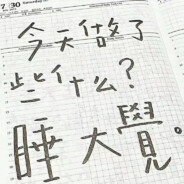 7/30 Saturday
今天做了
些什么?
睡大覺。